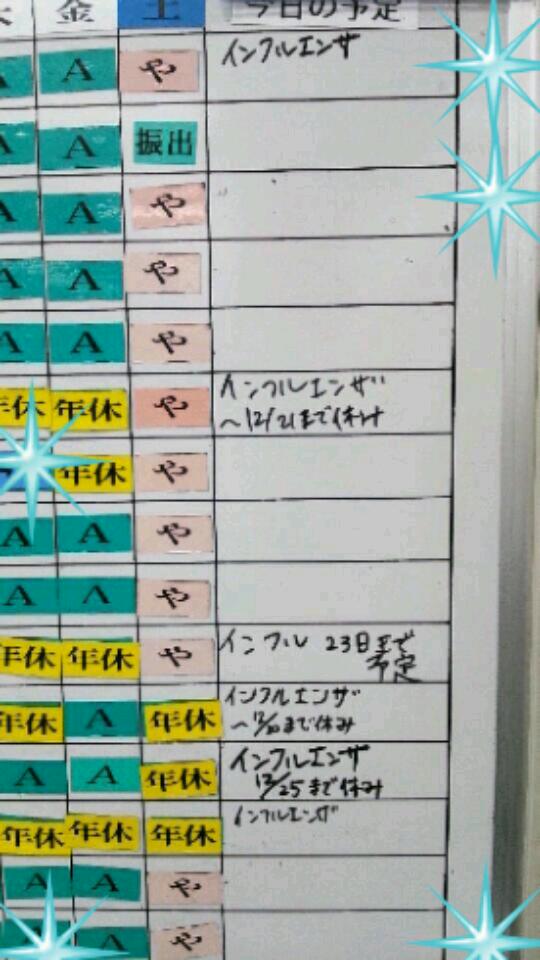 金 土 今日の予定
A A や インフルエンザ
A A 振出
A A や
A A や
A A や
年休 年休 や インフルエンザ
～12/21まで休み
年休 や
A A や
A A や
年休 年休 や インフル 23日まで
予定
年休 A 年休 インフルエンザ
まで休み
A A 年休 インフルエンザ
12/25まで休み
年休 年休 年休 インフルエンザ
A A や
A A や